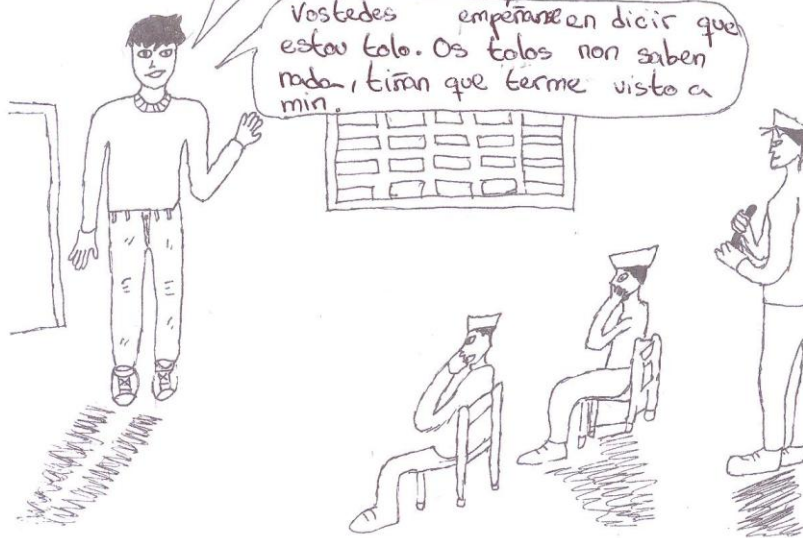 Vostedes empeñanse en dicir que
estou tolo. Os tolos non saben
nada, tiñan que terme visto a
min.